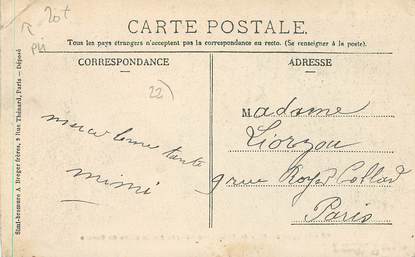 20t
pli
CARTE POSTALE.
Tous les pays étrangers n'acceptent pas la correspondance au recto. (Se renseigner à la poste).
CORRESPONDANCE
ADRESSE
22)
merci bonne tante
mimi
Madame
Liorzou
9 rue Royer Collard
Paris
Simi-bromure A. Breger frères, 9 Rue Thénard, Paris — Déposé